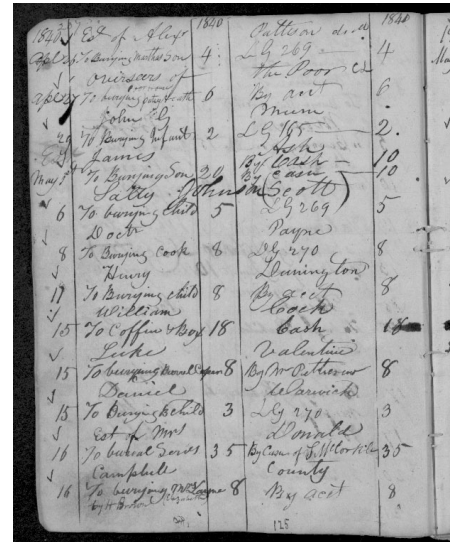 1840 Est of Alexr 1840 Pattison decd 1840
Apl 25 To Burying Mathw Son 4 LG 269 4
overseers of the Poor
Apl 27 To burying 6 By acct 6
John G Mum
29 To Burying Infant 2 LG 165 2.
James Ash
By Cash 10
May 5 To Burying Son 20 By Cash 10
Salty Johnson (Scott)
6 To burying child 5 LG 269 5
Doctr Payne
8 To Burying Cook 8 LG 270 8
Henry Dunington
11 To Burying child 8 By acct 8
William Cock
15 To Coffin & Box 18 Cash 18
Luke Valentine
15 To burying 8 By Mr Patterson 8
Daniel Warwick
15 To Burying B child 3 LG 270 3
Est of Mrs Donald
16 To burial Servis 35 By 35
Campbell County
16 To burying Mrs Layne 8 By acct 8
by H
125